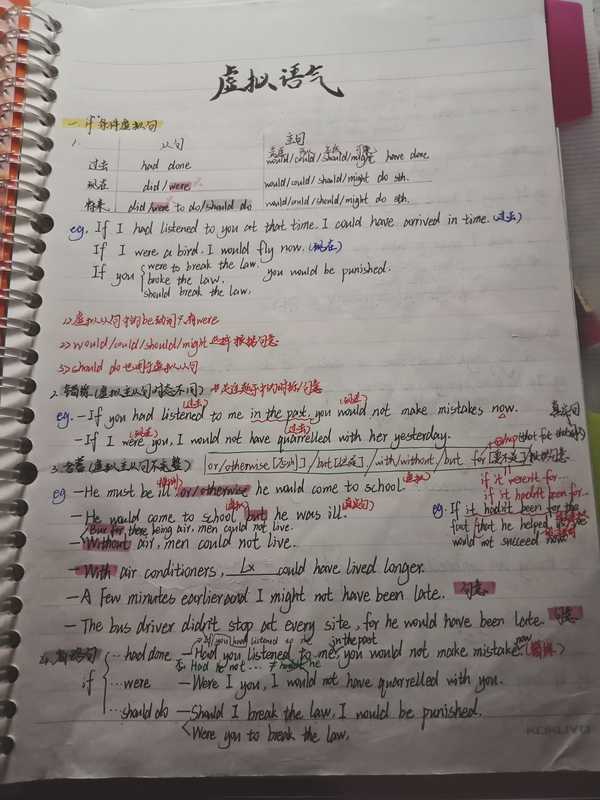 虚拟语气
一. if条件虚拟句
1. 从句 主句
过去 had done would/could/should/might have done
现在 did/were would/could/should/might do sth.
将来 did/were to do/should do would/could/should/might do sth.
eg. If I had listened to you at that time. I could have arrived in time. (过去)
If I were a bird. I would fly now. (现在)
If you were to break the law. you would be punished.
broke the law.
should break the law.
1> 虚拟从句中的be动词只有were
2> would/could/should/might 选择 根据句意
3> should do 也用于虚拟从句
2. 错综 (虚拟主从句时态不同)
(过去) (现在)
eg. - If you had listened to me in the past, you would not make mistakes now.
(现在) (过去)
- If I were you, I would not have quarrelled with her yesterday.
真实句
3. 含蓄 (虚拟主从句不完整) or/otherwise [否则] /but [但是] /with/without/but for [要不是] /根据句意
if it weren't for...
if it hadn't been for...
eg - He must be ill or/otherwise he would come to school. (虚拟)
- He would come to school but he was ill. (真实句)
eg: If it hadn't been for the
fact that he helped
would not succeed now.
But for there being air, men could not live.
Without air, men could not live.
- With air conditioners, Lx could have lived longer.
- A few minutes earlier and I might not have been late. 句意
- The bus driver didn't stop at every site, for he would have been late. 句意
If you had listened to me in the past
4. 倒装句 ... had done - Had you listened to me, you would not make mistake now. (错综)
否 Had he not ... ≠ hadn't he
if ... were - Were I you, I would not have quarrelled with you.
... should do - Should I break the law, I would be punished.
Were you to break the law,
KOKUYO